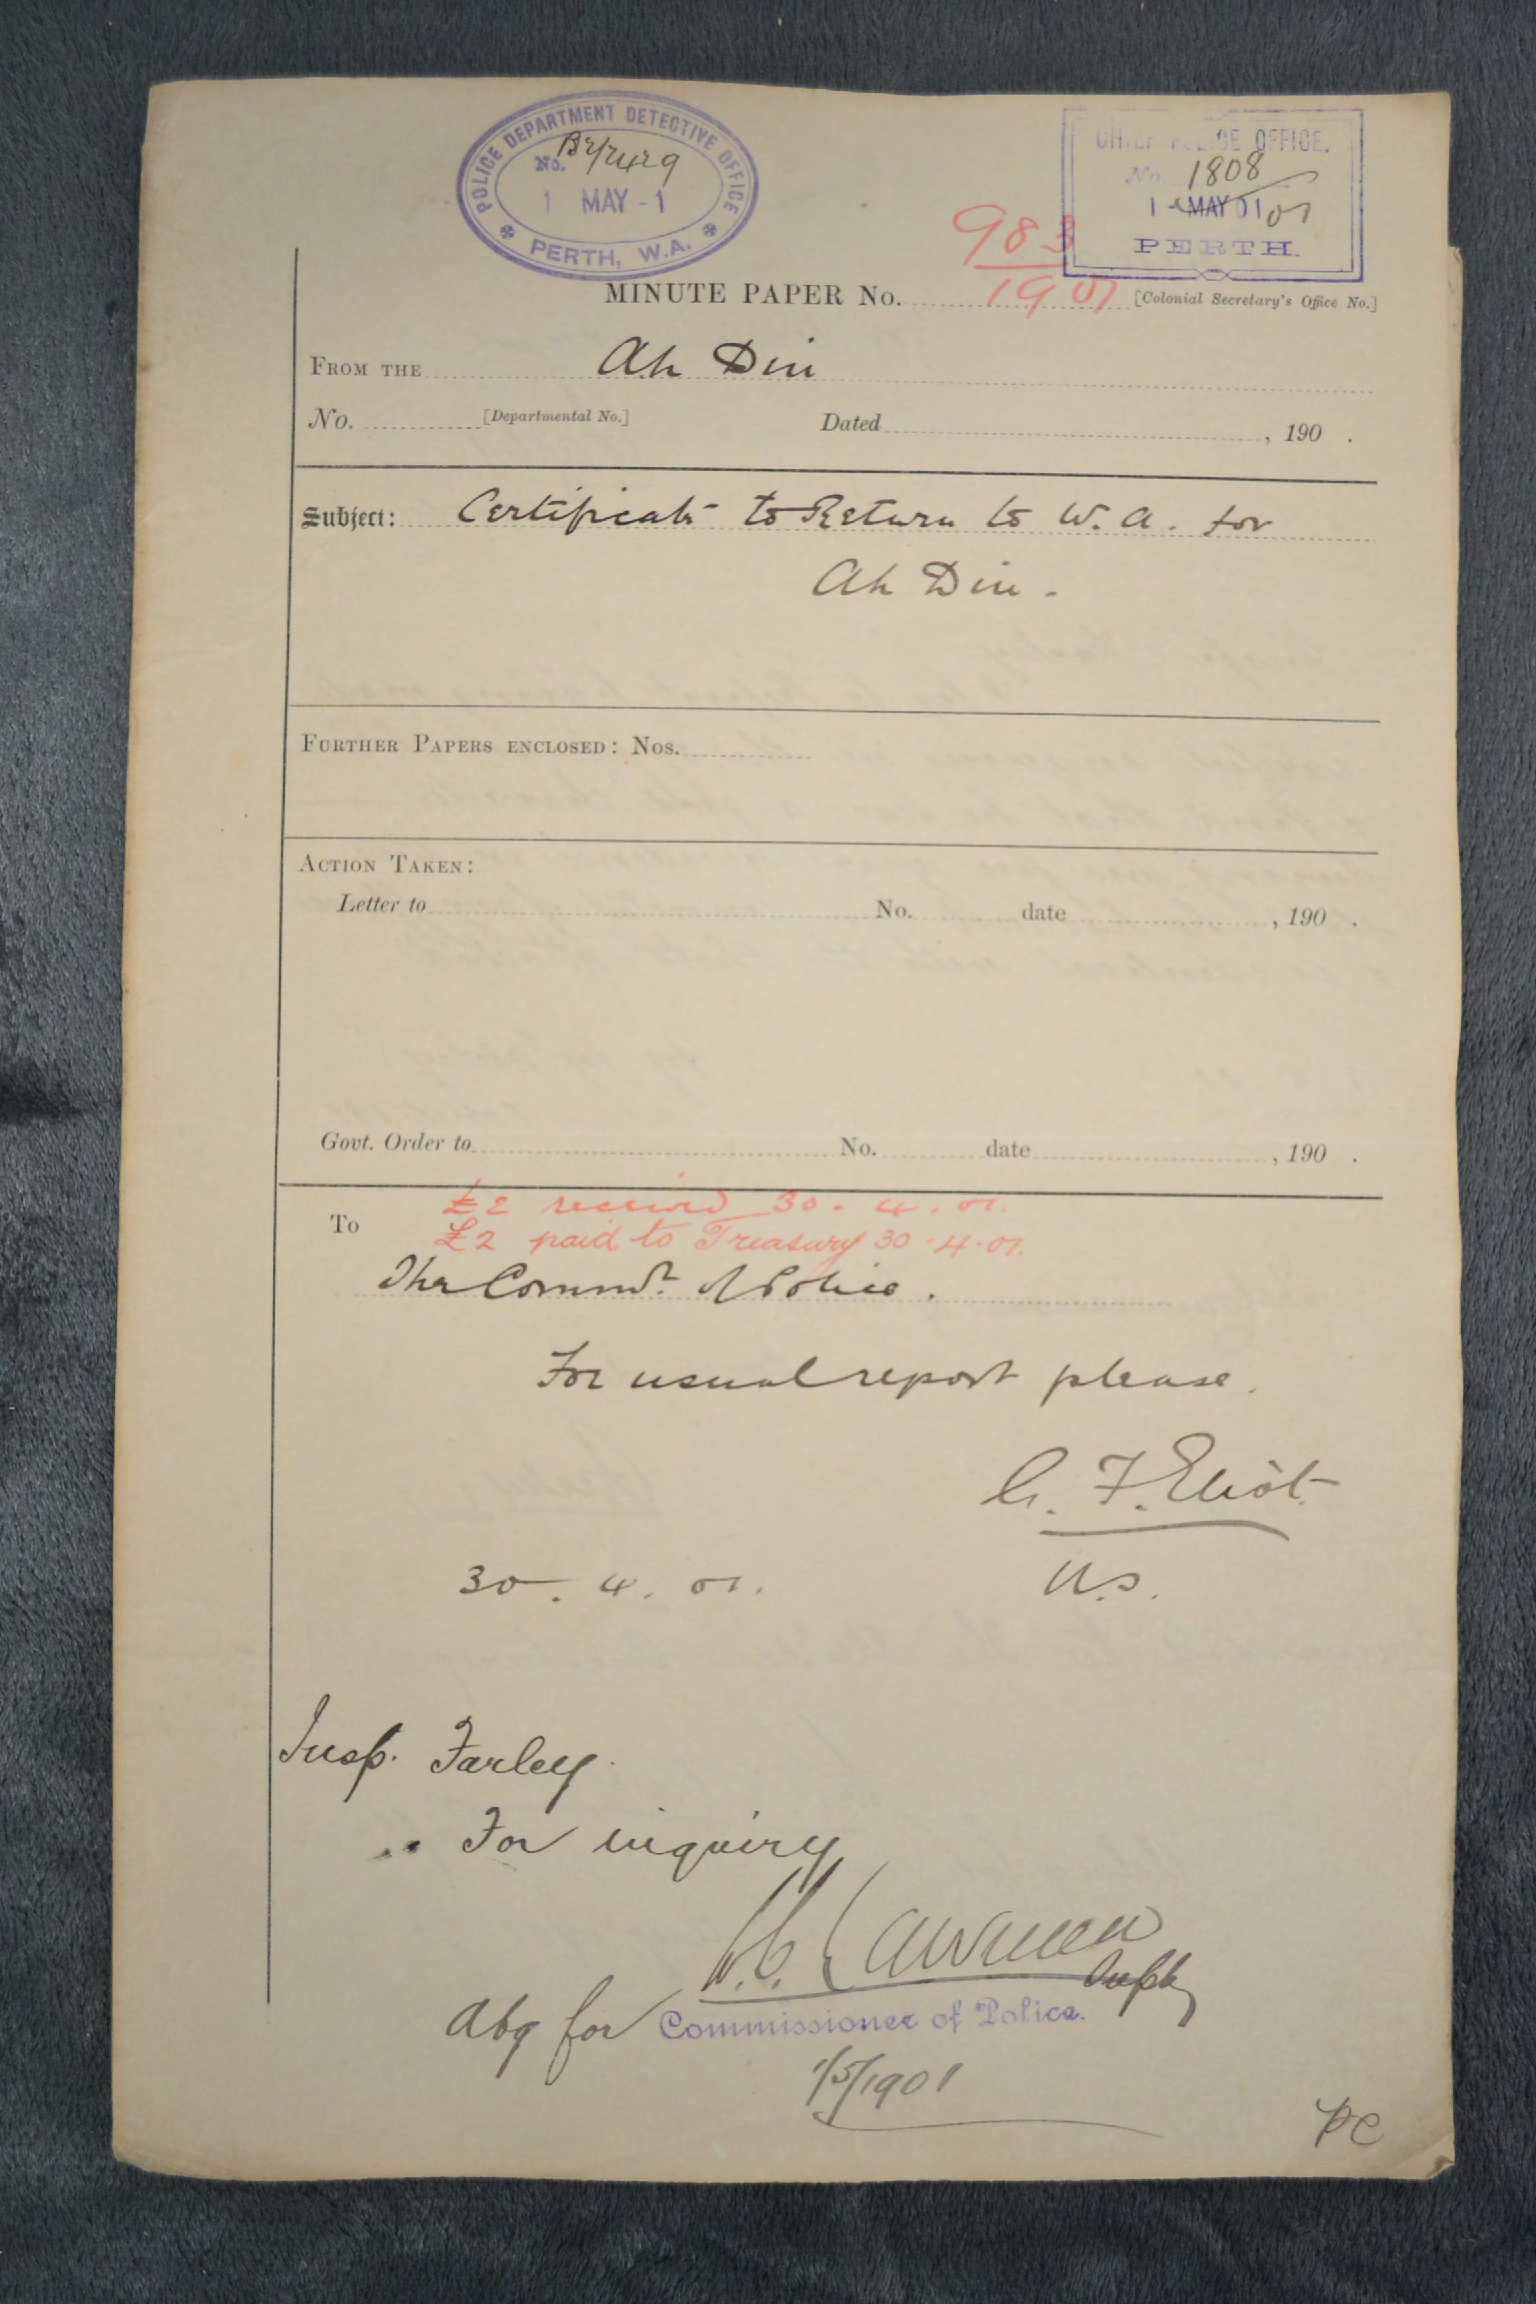 POLICE DEPARTMENT DETECTIVE OFFICE
No.
1 MAY - 1
PERTH, W.A.
CHIEF POLICE OFFICE.
No. 1808
1 - MAY 01 01
PERTH.
983
1901
MINUTE PAPER No. [Colonial Secretary's Office No.]
FROM THE Ah Din
No. [Departmental No.] Dated , 190 .
Subject: Certificate to Return to W. A. for
Ah Din .
FURTHER PAPERS ENCLOSED: Nos.
ACTION TAKEN:
Letter to No. date , 190 .
Govt. Order to No. date , 190 .
£2 received 30 . 4 . 01.
To £2 paid to Treasury 30 . 4 . 01.
The Commr. of Police .
For usual report please .
G. F. Eliot
30 . 4 . 01. U.S.
Insp. Farley.
For inquiry
W.C. Lawrence
Actg for Commissioner of Police.
1/5/1901
PC